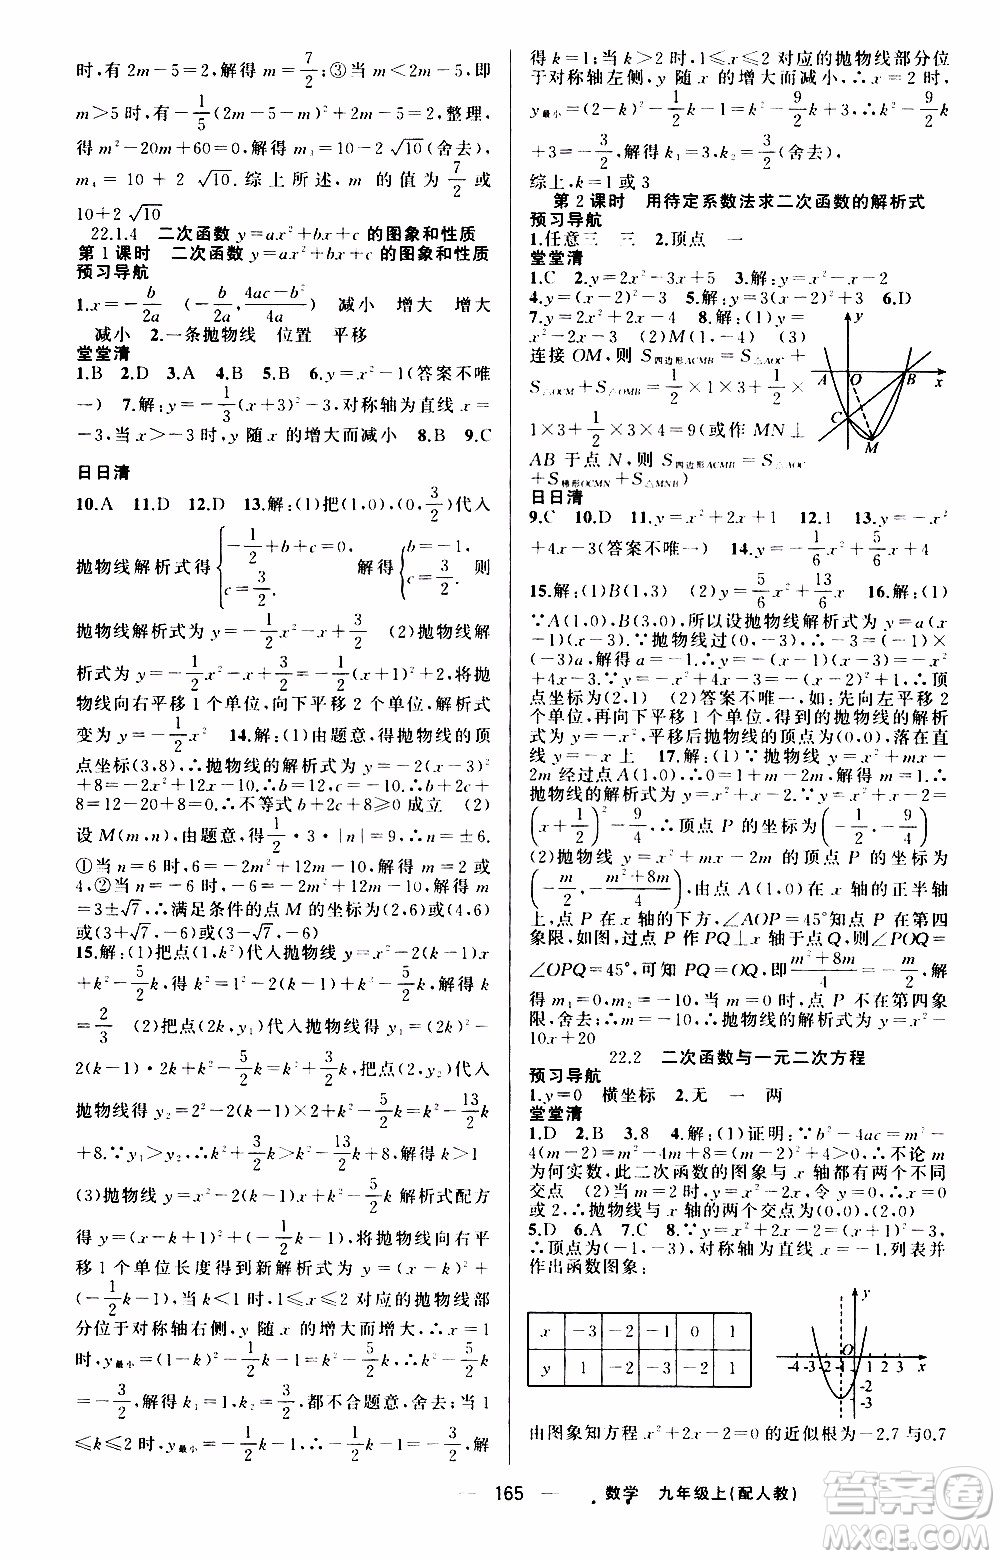 时,有2m-5=2,解得m=7/2;③当m<2m-5,即
m>5时,有-1/5(2m-5-m)²+2m-5=2,整理,
得m²-20m+60=0,解得m₃=10-2√10(舍去),
m₄=10+2√10.综上所述,m的值为7/2或
10+2√10
22.1.4 二次函数y=ax²+bx+c的图象和性质
第1课时 二次函数y=ax²+bx+c的图象和性质
预习导航
1.x=-b/2a (-b/2a,(4ac-b²)/4a) 减小 增大 增大
减小 2.一条抛物线 位置 平移
堂堂清
1.B 2.D 3.A 4.B 5.B 6.y=x²-1(答案不唯
一) 7.解:y=-1/3(x+3)²-3,对称轴为直线x=
-3,当x>-3时,y随x的增大而减小 8.B 9.C
日日清
10.A 11.D 12.D 13.解:(1)把(1,0),(0,3/2)代入
抛物线解析式得{-1/2+b+c=0, c=3/2. 解得{b=-1, c=3/2. 则
抛物线解析式为y=-1/2x²-x+3/2 (2)抛物线解
析式为y=-1/2x²-x+3/2=-1/2(x+1)²+2,将抛
物线向右平移1个单位,向下平移2个单位,解析式
变为y=-1/2x² 14.解:(1)由题意,得抛物线的顶
点坐标(3,8),∴抛物线的解析式为y=-2(x-3)²
+8=-2x²+12x-10.∴b=12,c=-10.∴b+2c+
8=12-20+8=0.∴不等式b+2c+8≥0成立 (2)
设M(m,n),由题意,得1/2·3·|n|=9,∴n=±6.
①当n=6时,6=-2m²+12m-10,解得m=2或
4,②当n=-6时,-6=-2m²+12m-10,解得m
=3±√7,∴满足条件的点M的坐标为(2,6)或(4,6)
或(3+√7,-6)或(3-√7,-6)
15.解:(1)把点(1,k²)代入抛物线y=x²-2(k-1)x
+k²-5/2k,得k²=1²-2(k-1)+k²-5/2k,解得k=
2/3 (2)把点(2k,y₁)代入抛物线得y₁=(2k)²-
2(k-1)·2k+k²-5/2k=k²+3/2k,把点(2,y₂)代入
抛物线得y₂=2²-2(k-1)×2+k²-5/2k=k²-13/2k
+8.∵y₁>y₂,∴k²+3/2k>k²-13/2k+8,解得k>1
(3)抛物线y=x²-2(k-1)x+k²-5/2k解析式配方
得y=(x-k+1)²+(-1/2k-1),将抛物线向右平
移1个单位长度得到新解析式为y=(x-k)²+
(-1/2k-1).当k<1时,1≤x≤2对应的抛物线部
分位于对称轴右侧,y随x的增大而增大,∴x=1
时,y最小=(1-k)²-1/2k-1=k²-5/2k,∴k²-5/2k=
-3/2,解得k₁=1,k₂=3/2,都不合题意,舍去;当1
≤k≤2时,y最小=-1/2k-1,∴-1/2k-1=-3/2,解
得k=1;当k>2时,1≤x≤2对应的抛物线部分位
于对称轴左侧,y随x的增大而减小,∴x=2时,
y最小=(2-k)²-1/2k-1=k²-9/2k+3,∴k²-9/2k
+3=-3/2,解得k₁=3,k₂=3/2(舍去),
综上,k=1或3
第2课时 用待定系数法求二次函数的解析式
预习导航
1.任意三 三 2.顶点 一
堂堂清
1.C 2.y=2x²-3x+5 3.解:y=x²-x-2
4.y=-(x+2)²-3 5.解:y=3(x-1)²+3 6.D
7.y=-2x²-2x+4 8.解:(1)y
=x²-2x-3 (2)M(1,-4)
连接OM,则S四边形ACMB=S△AOC+
S△OCM+S△OMB=1/2×1×3+1/2
×1×3+1/2×3×4=9(或作MN⊥
AB于点N,则S四边形ACMB=S△AOC
+S梯形OCMN+S△MNB)
日日清
9.C 10.D 11.y=x²+2x+1 12.1 13.y=-x²
+4x-3(答案不唯一) 14.y=-1/6x²+5/6x+4
15.解:(1)B(1,3) (2)y=5/6x²+13/6x 16.解:(1)
∵A(1,0),B(3,0),所以设抛物线解析式为y=a(x
-1)(x-3).∵抛物线过(0,-3),∴-3=a(-1)×
(-3),解得a=-1,∴y=-(x-2)²+1,∴顶
点坐标为(2,1) (2)答案不唯一,如:先向左平移2
个单位,再向下平移1个单位,得到的抛物线的解析
式为y=-x²,平移后抛物线的顶点为(0,0),落在直
线y=-x上 17.解:(1)∵抛物线y=x²+mx-
2m经过点A(1,0),∴0=1+m-2m,解得m=1,∴
抛物线的解析式为y=x²+x-2.∵y=x²+x-2=
(x+1/2)²-9/4,∴顶点P的坐标为(-1/2,-9/4)
(2)抛物线y=x²+mx-2m的顶点P的坐标为
(-m/2,-(m²+8m)/4),由点A(1,0)在x轴的正半轴
上,点P在x轴的下方,∠AOP=45°知点P在第四
象限,如图,过点P作PQ⊥x轴于点Q,则∠POQ=
∠OPQ=45°,可知PQ=OQ,即(m²+8m)/4=-m/2,解
得m₁=0,m₂=-10.当m=0时,点P不在第四象
限,舍去;∴m=-10,∴抛物线的解析式为y=x²-
10x+20
22.2 二次函数与一元二次方程
预习导航
1.y=0 横坐标 2.无 一 两
堂堂清
1.D 2.B 3.8 4.解:(1)证明:∵b²-4ac=m²-
4(m-2)=m²-4m+8=(m-2)²+4>0,∴不论m
为何实数,此二次函数的图象与x轴都有两个不同
交点 (2)当m=2时,y=x²+2x,令y=0得x=0或x=-
2,∴抛物线与x轴的两个交点为(0,0),(-2,0)
5.D 6.A 7.C 8.∵y=x²+2x-2=(x+1)²-3,
∴顶点为(-1,-3),对称轴为直线x=-1,列表并
作出函数图象:
x -3 -2 -1 0 1
y 1 -2 -3 -2 1
由图象知方程x²+2x-2=0的近似根为-2.7与0.7
165
数学 九年级上(配人教)
答案圈
MXQE.COM